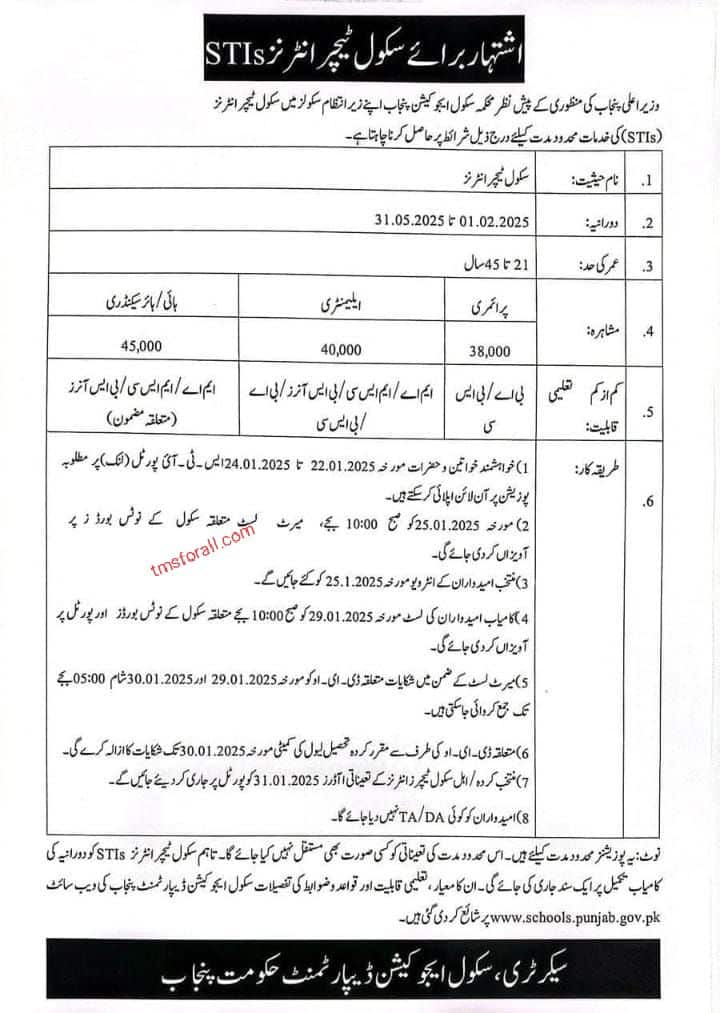 اشتہار برائے سکول ٹیچر انٹرنز STIs
وزیر اعلی پنجاب کی منظوری کے پیش نظر محکمہ سکول ایجوکیشن پنجاب اپنے زیر انتظام سکولز میں سکول ٹیچر انٹرنز
(STIs) کی خدمات محدود مدت کیلئے درج ذیل شرائط پر حاصل کرنا چاہتا ہے۔
1. نام حیثیت: سکول ٹیچر انٹرنز
2. دورانیہ: 01.02.2025 تا 31.05.2025
3. عمر کی حد: 21 تا 45 سال
4. مشاہرہ: پرائمری ایلیمنٹری ہائی/ہائر سیکنڈری
38,000 40,000 45,000
5. کم از کم تعلیمی بی اے/بی ایس ایم اے/ایم ایس سی/بی ایس آنرز/بی اے ایم اے/ایم ایس سی/بی ایس آنرز
قابلیت: سی /بی ایس سی (متعلقہ مضمون)
6. طریقہ کار: 1) خواہشمند خواتین و حضرات مورخہ 22.01.2025 تا 24.01.2025 ایس۔ٹی۔آئی پورٹل (لنک) پر مطلوبہ
پوزیشن پر آن لائن اپلائی کر سکتے ہیں۔
2) مورخہ 25.01.2025 کو صبح 10:00 بجے، میرٹ لسٹ متعلقہ سکول کے نوٹس بورڈز پر
آویزاں کر دی جائے گی۔
tmsforall.com
3) منتخب امیدواران کے انٹرویو مورخہ 25.1.2025 کو کئے جائیں گے۔
4) کامیاب امیدواران کی لسٹ مورخہ 29.01.2025 کو صبح 10:00 بجے متعلقہ سکول کے نوٹس بورڈز اور پورٹل پر
آویزاں کر دی جائے گی۔
5) میرٹ لسٹ کے ضمن میں شکایات متعلقہ ڈی۔ای۔او کو مورخہ 29.01.2025 اور 30.01.2025 شام 05:00 بجے
تک جمع کروائی جا سکتی ہیں۔
6) متعلقہ ڈی۔ای۔او کی طرف سے مقرر کردہ تحصیل لیول کی کمیٹی مورخہ 30.01.2025 تک شکایات کا ازالہ کرے گی۔
7) منتخب کردہ/اہل سکول ٹیچرز انٹرنز کے تعیناتی آڈرز 31.01.2025 کو پورٹل پر جاری کر دیئے جائیں گے۔
8) امیدواران کو کوئی TA/DA نہیں دیا جائے گا۔
نوٹ: یہ پوزیشنز محدود مدت کیلئے ہیں۔ اس محدود مدت کی تعیناتی کو کسی صورت بھی مستقل نہیں کیا جائے گا۔ تاہم سکول ٹیچر انٹرنز STIs کو دورانیہ کی
کامیاب تکمیل پر ایک سند جاری کی جائے گی۔ ان کا معیار، تعلیمی قابلیت اور قواعد و ضوابط کی تفصیلات سکول ایجوکیشن ڈیپارٹمنٹ پنجاب کی ویب سائٹ
www.schools.punjab.gov.pk پر شائع کر دی گئی ہیں۔
سیکرٹری، سکول ایجوکیشن ڈیپارٹمنٹ حکومت پنجاب